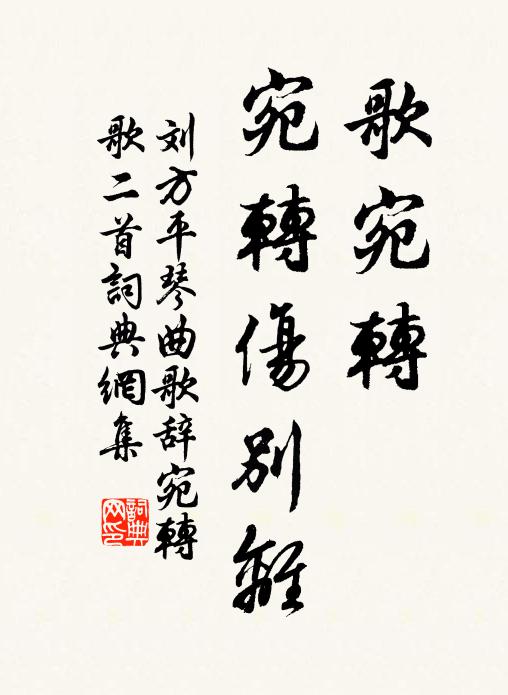 歌宛轉
宛轉傷别離
刘方平琴曲歌辞宛轉
歌二首詞典網集
詞典
网印